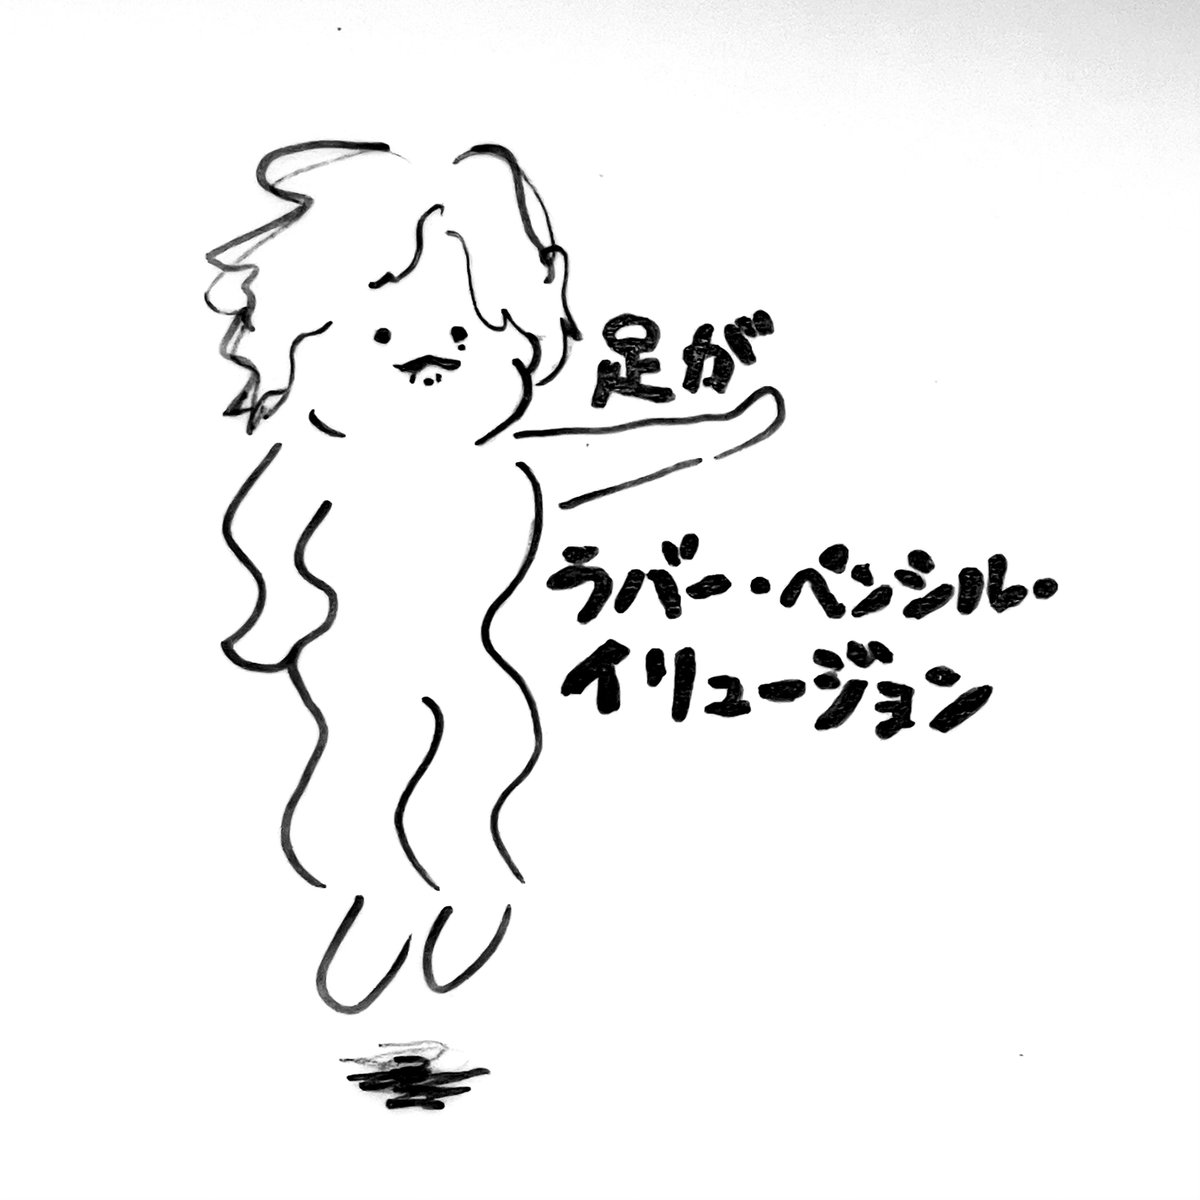 足が
ラバー・ペンシル・
イリュージョン